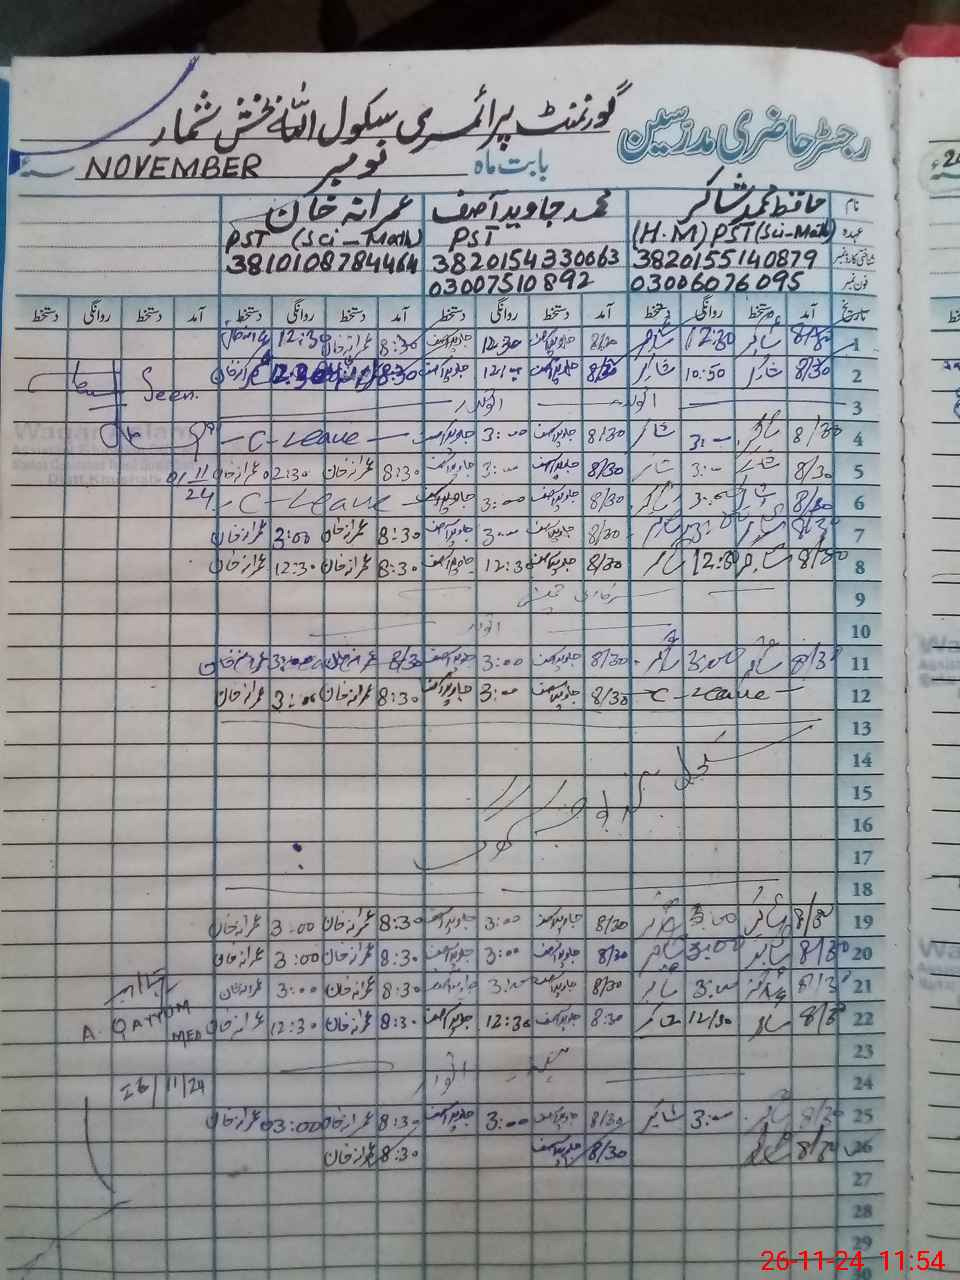 رجسٹر حاضری مدرسین گورنمنٹ پرائمری سکول اللہ بخش شمار
بابت ماہ نومبر NOVEMBER سنہ
نام حافظ محمد شاکر محمد جاوید آصف عمرانہ خان
عہدہ (H.M) PST (Sci-Math) PST PST (Sci-Math)
شناختی کارڈ نمبر 3820155140879 3820154330063 3810108784464
فون نمبر 03006076095 03007510892
تاریخ آمد دستخط روانگی دستخط آمد دستخط روانگی دستخط آمد دستخط روانگی دستخط آمد دستخط روانگی دستخط
1 8/30 شاکر 12:30 شاکر 8/30 جاوید آصف 12:30 جاوید آصف 8:30 عمرانہ خان 12:30 عمرانہ خان
2 8/30 شاکر 10:50 شاکر 8/30 جاوید آصف جاوید آصف 8:30 12:30 عمرانہ خان Seen
3 اتوار اتوار
4 8/30 شاکر 3:00 شاکر 8/30 جاوید آصف 3:00 جاوید آصف - C-Leave -
5 8/30 شاکر 3:00 شاکر 8/30 جاوید آصف 3:00 جاوید آصف 8:30 عمرانہ خان 02:30 عمرانہ خان
6 8/30 شاکر 3:00 شاکر 8/30 جاوید آصف 3:00 جاوید آصف - C-Leave - 24
7 8/30 شاکر 3:00 شاکر 8/30 جاوید آصف 3:00 جاوید آصف 8:30 عمرانہ خان 3:00 عمرانہ خان
8 8/30 شاکر 12:30 شاکر 8/30 جاوید آصف 12:30 جاوید آصف 8:30 عمرانہ خان 12:30 عمرانہ خان
9
10 اتوار
11 8/30 شاکر 3:00 شاکر 8/30 جاوید آصف 3:00 جاوید آصف 8/30 عمرانہ خان 3:00 عمرانہ خان
12 - C-Leave - 8/30 جاوید آصف 3:00 جاوید آصف 8:30 عمرانہ خان 3:00 عمرانہ خان
13
14
15
16
17
18
19 8/30 شاکر 3:00 شاکر 8/30 جاوید آصف 3:00 جاوید آصف 8:30 عمرانہ خان 3:00 عمرانہ خان
20 8/30 شاکر 3:00 شاکر 8/30 جاوید آصف 3:00 جاوید آصف 8:30 عمرانہ خان 3:00 عمرانہ خان
21 8/30 شاکر 3:00 شاکر 8/30 جاوید آصف 3:00 جاوید آصف 8:30 عمرانہ خان 3:00 عمرانہ خان
22 8/30 شاکر 12/30 شاکر 8:30 جاوید آصف 12:30 جاوید آصف 8:30 عمرانہ خان 12:30 عمرانہ خان
A. QAYYUM
MEA
23
24 اتوار 26/11/24
25 8/30 شاکر 3:00 شاکر 8/30 جاوید آصف 3:00 جاوید آصف 8:30 عمرانہ خان 03:00 عمرانہ خان
26 8/30 شاکر 8/30 جاوید آصف 8:30 عمرانہ خان
27
28
29
30
26-11-24 11:54